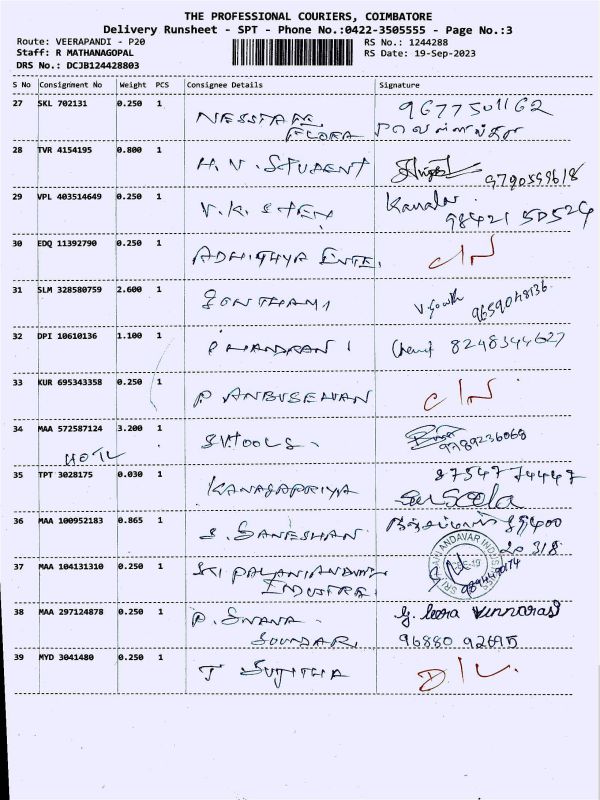 THE PROFESSIONAL COURIERS, COIMBATORE
Delivery Runsheet - SPT - Phone No.:0422-3505555 - Page No.:3
Route: VEERAPANDI - P20 RS No.: 1244288
Staff: R MATHANAGOPAL RS Date: 19-Sep-2023
DRS No.: DCJB124428803
S No Consignment No Weight PCS Consignee Details Signature
27 SKL 702131 0.250 1 9677501162
FLORA
28 TVR 4154195 0.800 1 H.V. STUDENT
9790599618
29 VPL 403514649 0.250 1 V.K. STEN Kamala
98421 50524
30 EDQ 11392790 0.250 1 ADHITHYA ENTE. C/N
31 SLM 328580759 2.600 1 GONTHAMI V.Gowth 9659048136
32 DPI 10610136 1.100 1 8248344627
33 KUR 695343358 0.250 1 P. ANBUSELVAN C/N
34 MAA 572587124 3.200 1 9789236068
35 TPT 3028175 0.030 1 KANAGAPRIYA 87547 74447
36 MAA 100952183 0.865 1 S. GANESHAN
20 318
37 MAA 104131310 0.250 1 SRI PALANIANDAVAR
INDUSTRI
38 MAA 297124878 0.250 1 P. GNANA
SOUNDAR 96880 92695
39 MYD 3041480 0.250 1 T SUJITHA D/L